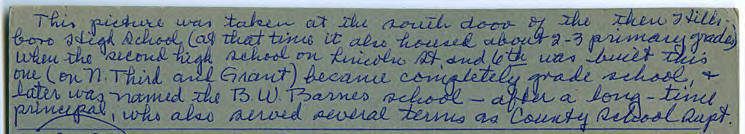 This picture was taken at the south door of the then Hills-
boro High School (at that time it also housed about 2-3 primary grades)
When the second high school on Lincoln St. and 6th was built this
one (on N. Third and Grant) became completely grade school, &
later was named the B.W. Barnes school - after a long-time
principal, who also served several terms as County School Supt.